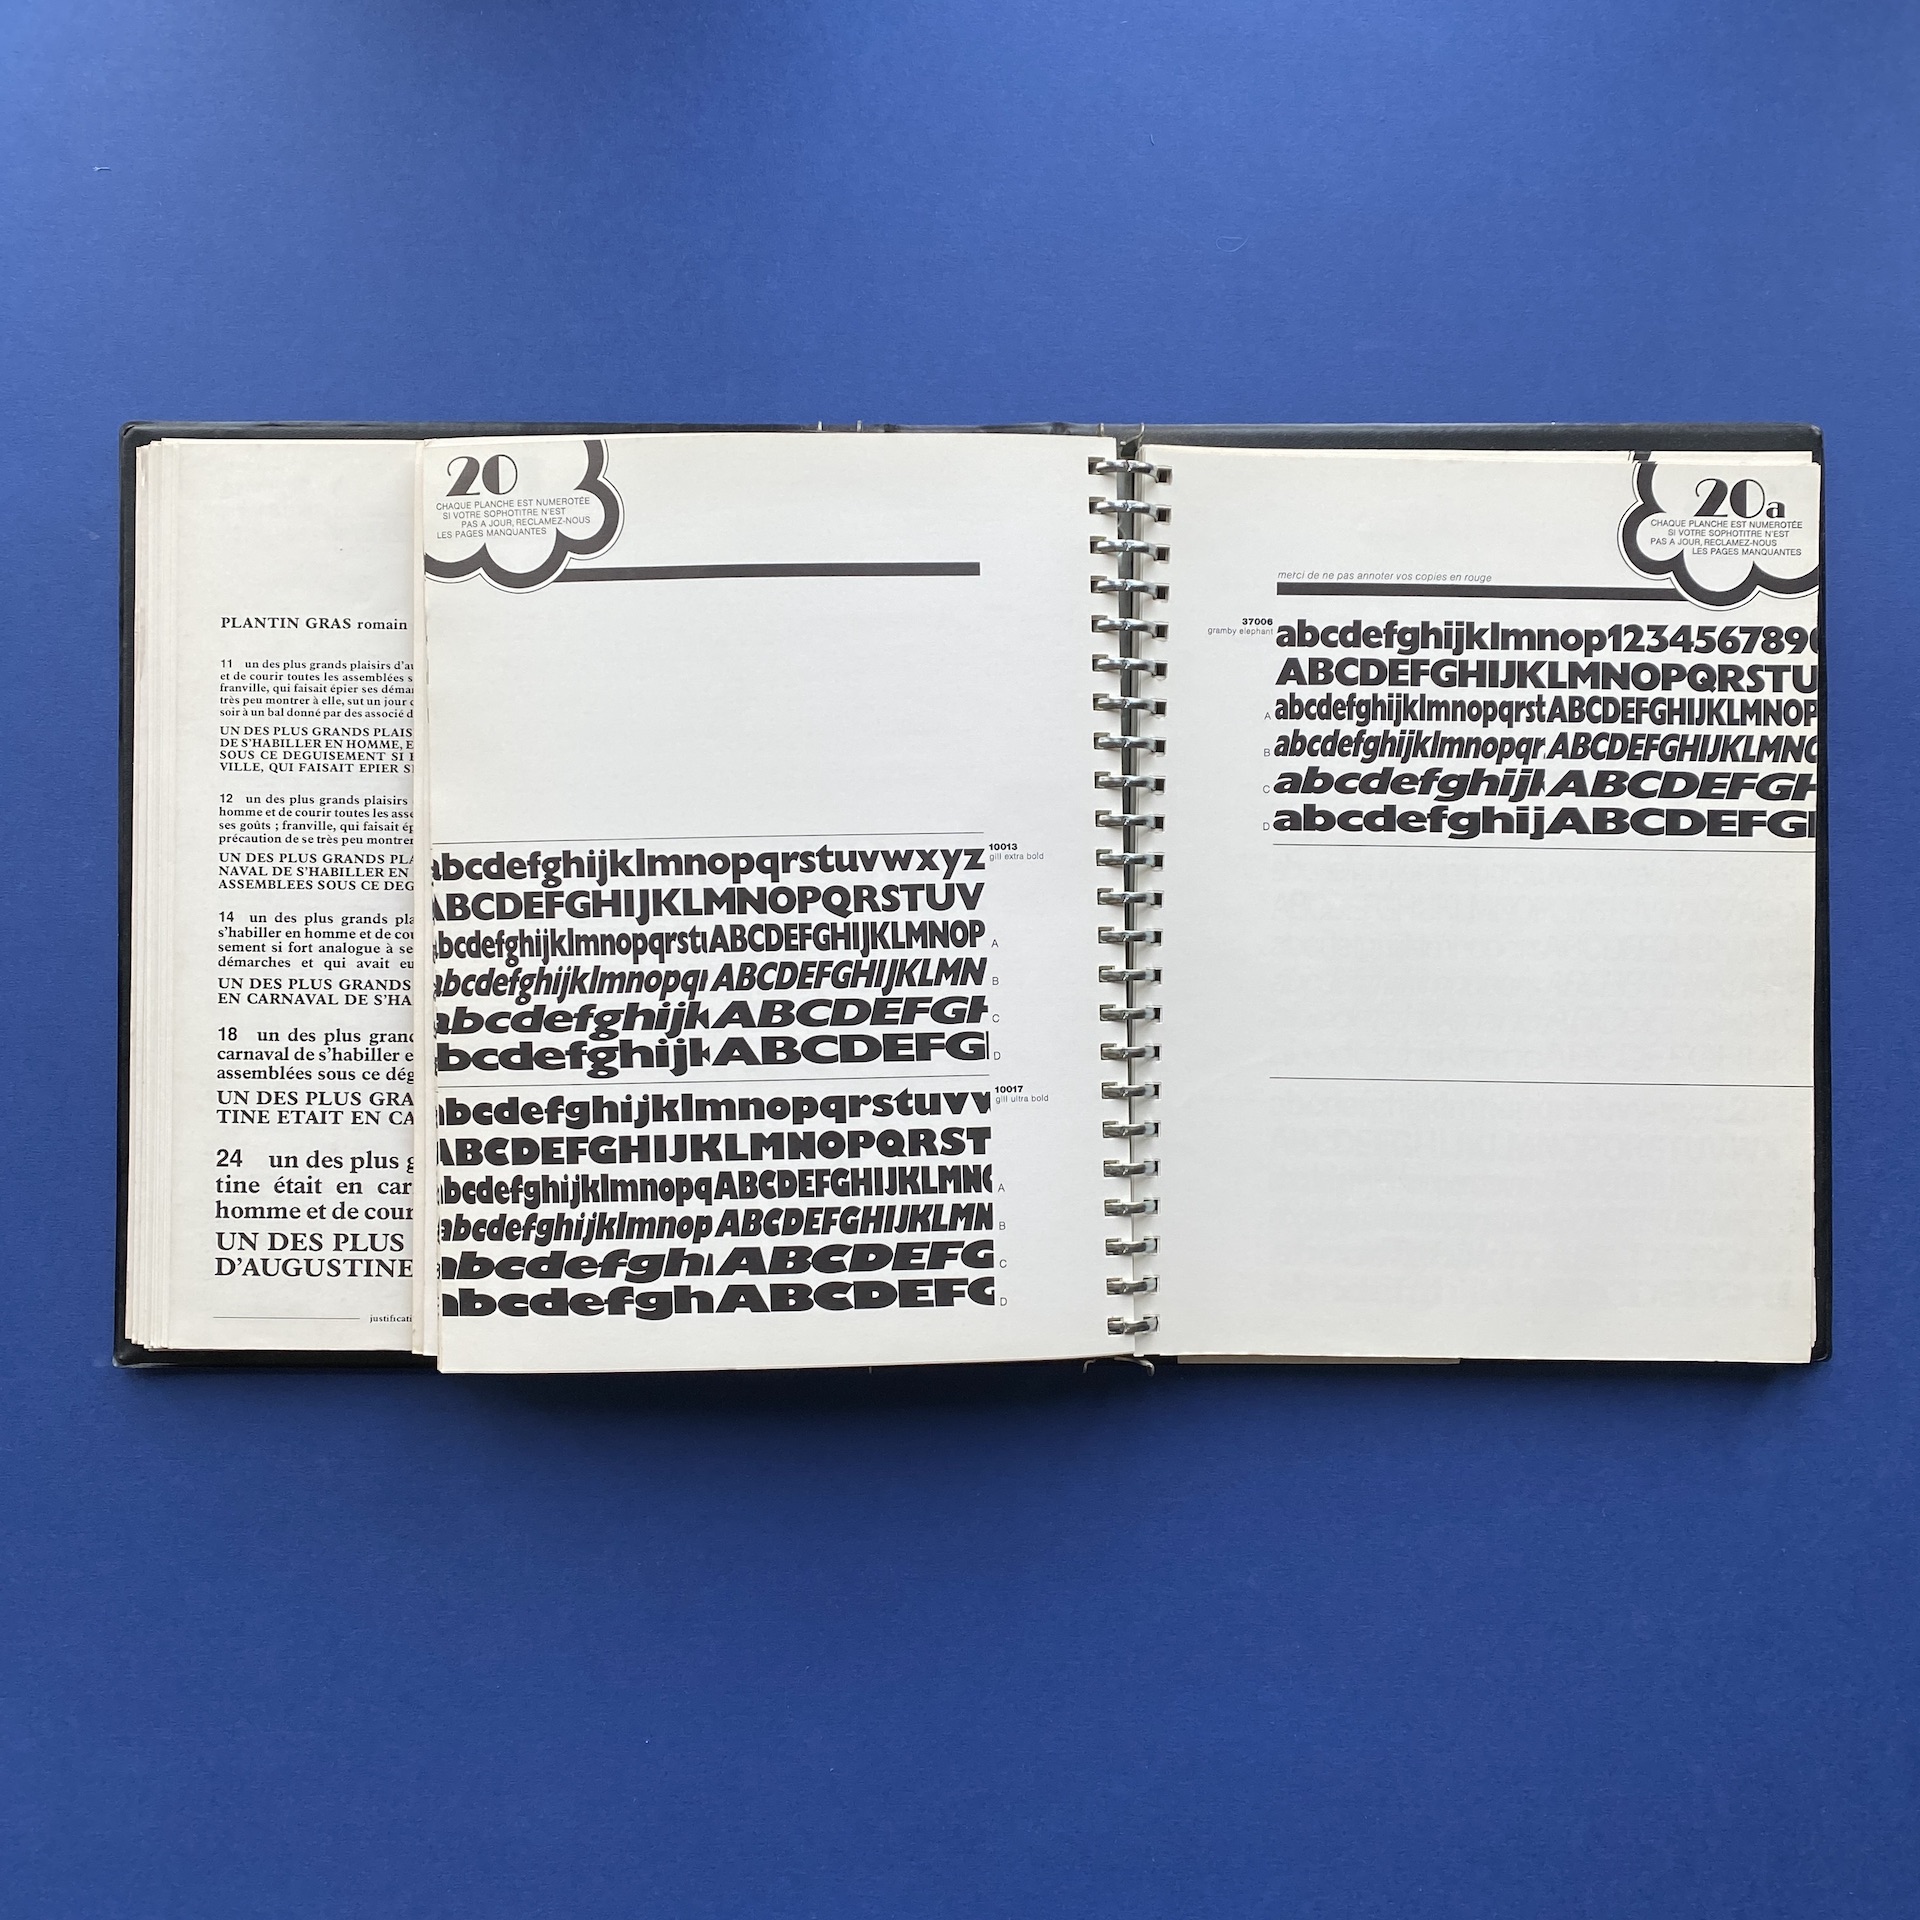 PLANTIN GRAS romain
11 un des plus grands plaisirs d'au
et de courir toutes les assemblées s
franville, qui faisait épier ses démar
très peu montrer à elle, sut un jour
soir à un bal donné par des associé d
UN DES PLUS GRANDS PLAIS
DE S'HABILLER EN HOMME, E
SOUS CE DEGUISEMENT SI
VILLE, QUI FAISAIT EPIER S
12 un des plus grands plaisirs
homme et de courir toutes les asse
ses goûts ; franville, qui faisait ép
précaution de se très peu montrer
UN DES PLUS GRANDS PLA
NAVAL DE S'HABILLER EN
ASSEMBLEES SOUS CE DEG
14 un des plus grands pla
s'habiller en homme et de cou
sement si fort analogue à se
démarches et qui avait eu
UN DES PLUS GRANDS
EN CARNAVAL DE S'HA
18 un des plus grand
carnaval de s'habiller e
assemblées sous ce dég
UN DES PLUS GRA
TINE ETAIT EN CA
24 un des plus g
tine était en car
homme et de cour
UN DES PLUS
D'AUGUSTINE
justificati
20
CHAQUE PLANCHE EST NUMEROTÉE
SI VOTRE SOPHOTITRE N'EST
PAS A JOUR, RECLAMEZ-NOUS
LES PAGES MANQUANTES
10013
gill extra bold
abcdefghijklmnopqrstuvwxyz
ABCDEFGHIJKLMNOPQRSTUV
abcdefghijklmnopqrstuABCDEFGHIJKLMNOP A
abcdefghijklmnopqr ABCDEFGHIJKLMN B
abcdefghijkABCDEFGH C
abcdefghijkABCDEFG D
10017
gill ultra bold
abcdefghijklmnopqrstuvw
ABCDEFGHIJKLMNOPQRST
abcdefghijklmnopqABCDEFGHIJKLMNO A
abcdefghijklmnop ABCDEFGHIJKLMN B
abcdefghi ABCDEFG C
abcdefghABCDEFG D
20a
CHAQUE PLANCHE EST NUMEROTÉE
SI VOTRE SOPHOTITRE N'EST
PAS A JOUR, RECLAMEZ-NOUS
LES PAGES MANQUANTES
merci de ne pas annoter vos copies en rouge
37006
gramby elephant
abcdefghijklmnop1234567890
ABCDEFGHIJKLMNOPQRSTU
A abcdefghijklmnopqrstABCDEFGHIJKLMNOP
B abcdefghijklmnopqr ABCDEFGHIJKLMNO
C abcdefghijkABCDEFGH
D abcdefghijABCDEFG